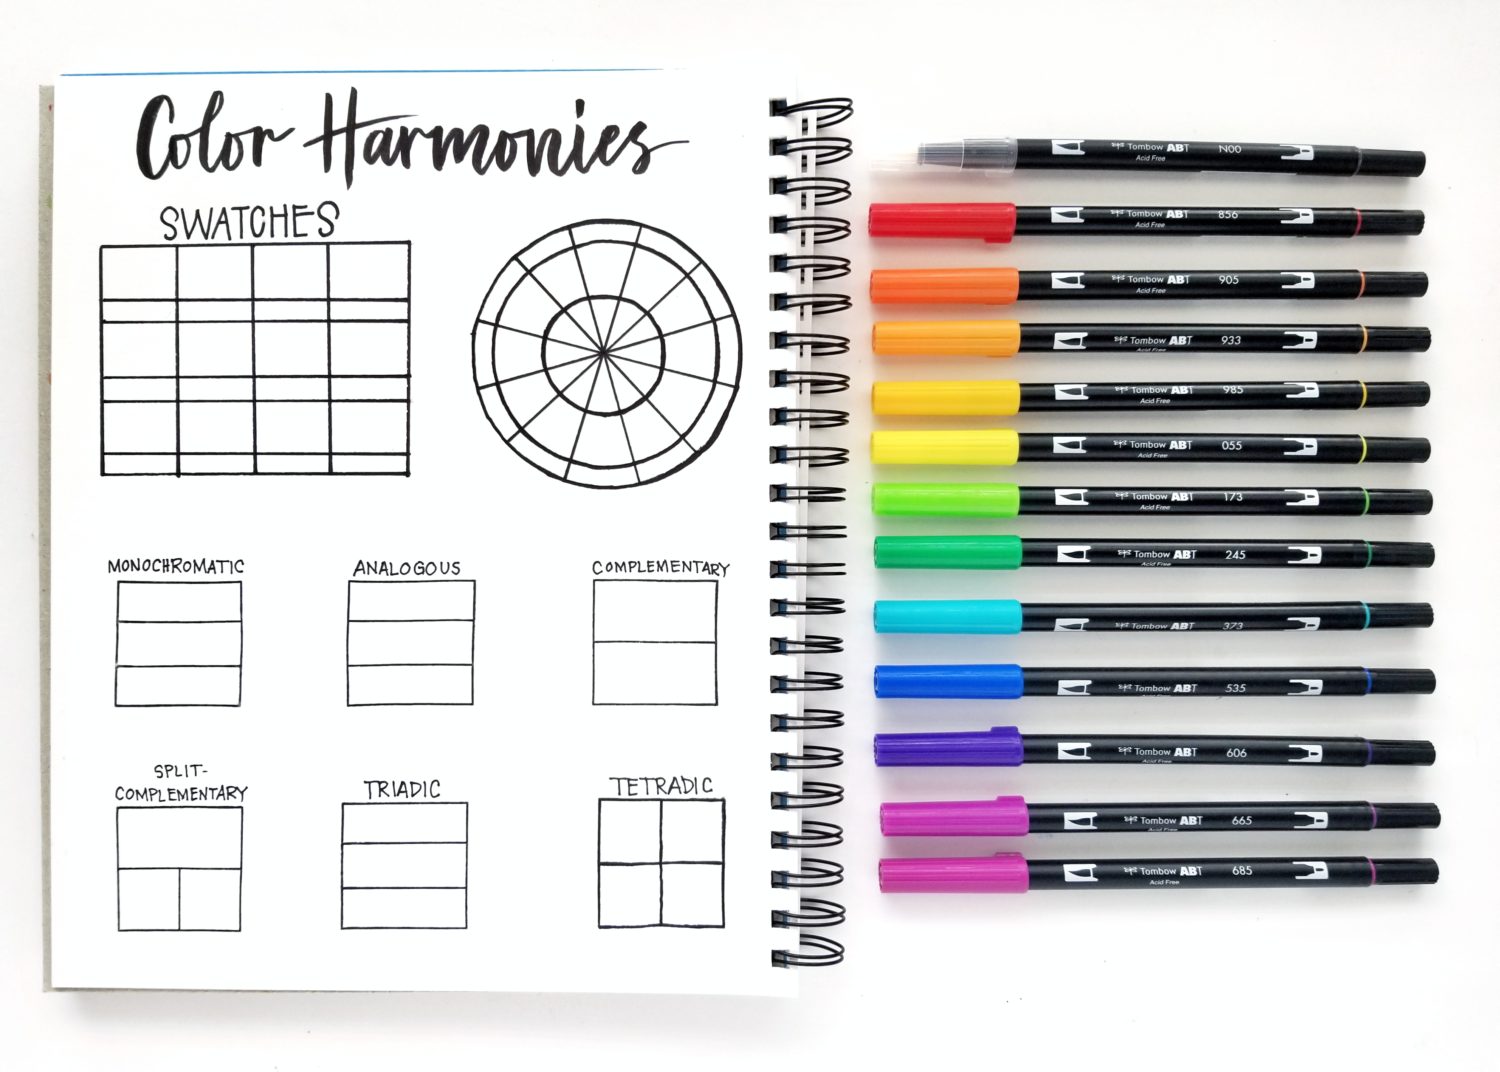 Color Harmonies
SWATCHES
MONOCHROMATIC
ANALOGOUS
COMPLEMENTARY
SPLIT-
COMPLEMENTARY
TRIADIC
TETRADIC
Tombow ABT N00
Acid Free
Tombow ABT 856
Acid Free
Tombow ABT 905
Acid Free
Tombow ABT 933
Acid Free
Tombow ABT 985
Acid Free
Tombow ABT 055
Acid Free
Tombow ABT 173
Acid Free
Tombow ABT 245
Tombow ABT 373
Tombow ABT 535
Tombow ABT 606
Tombow ABT 665
Acid Free
Tombow ABT 685
Acid Free